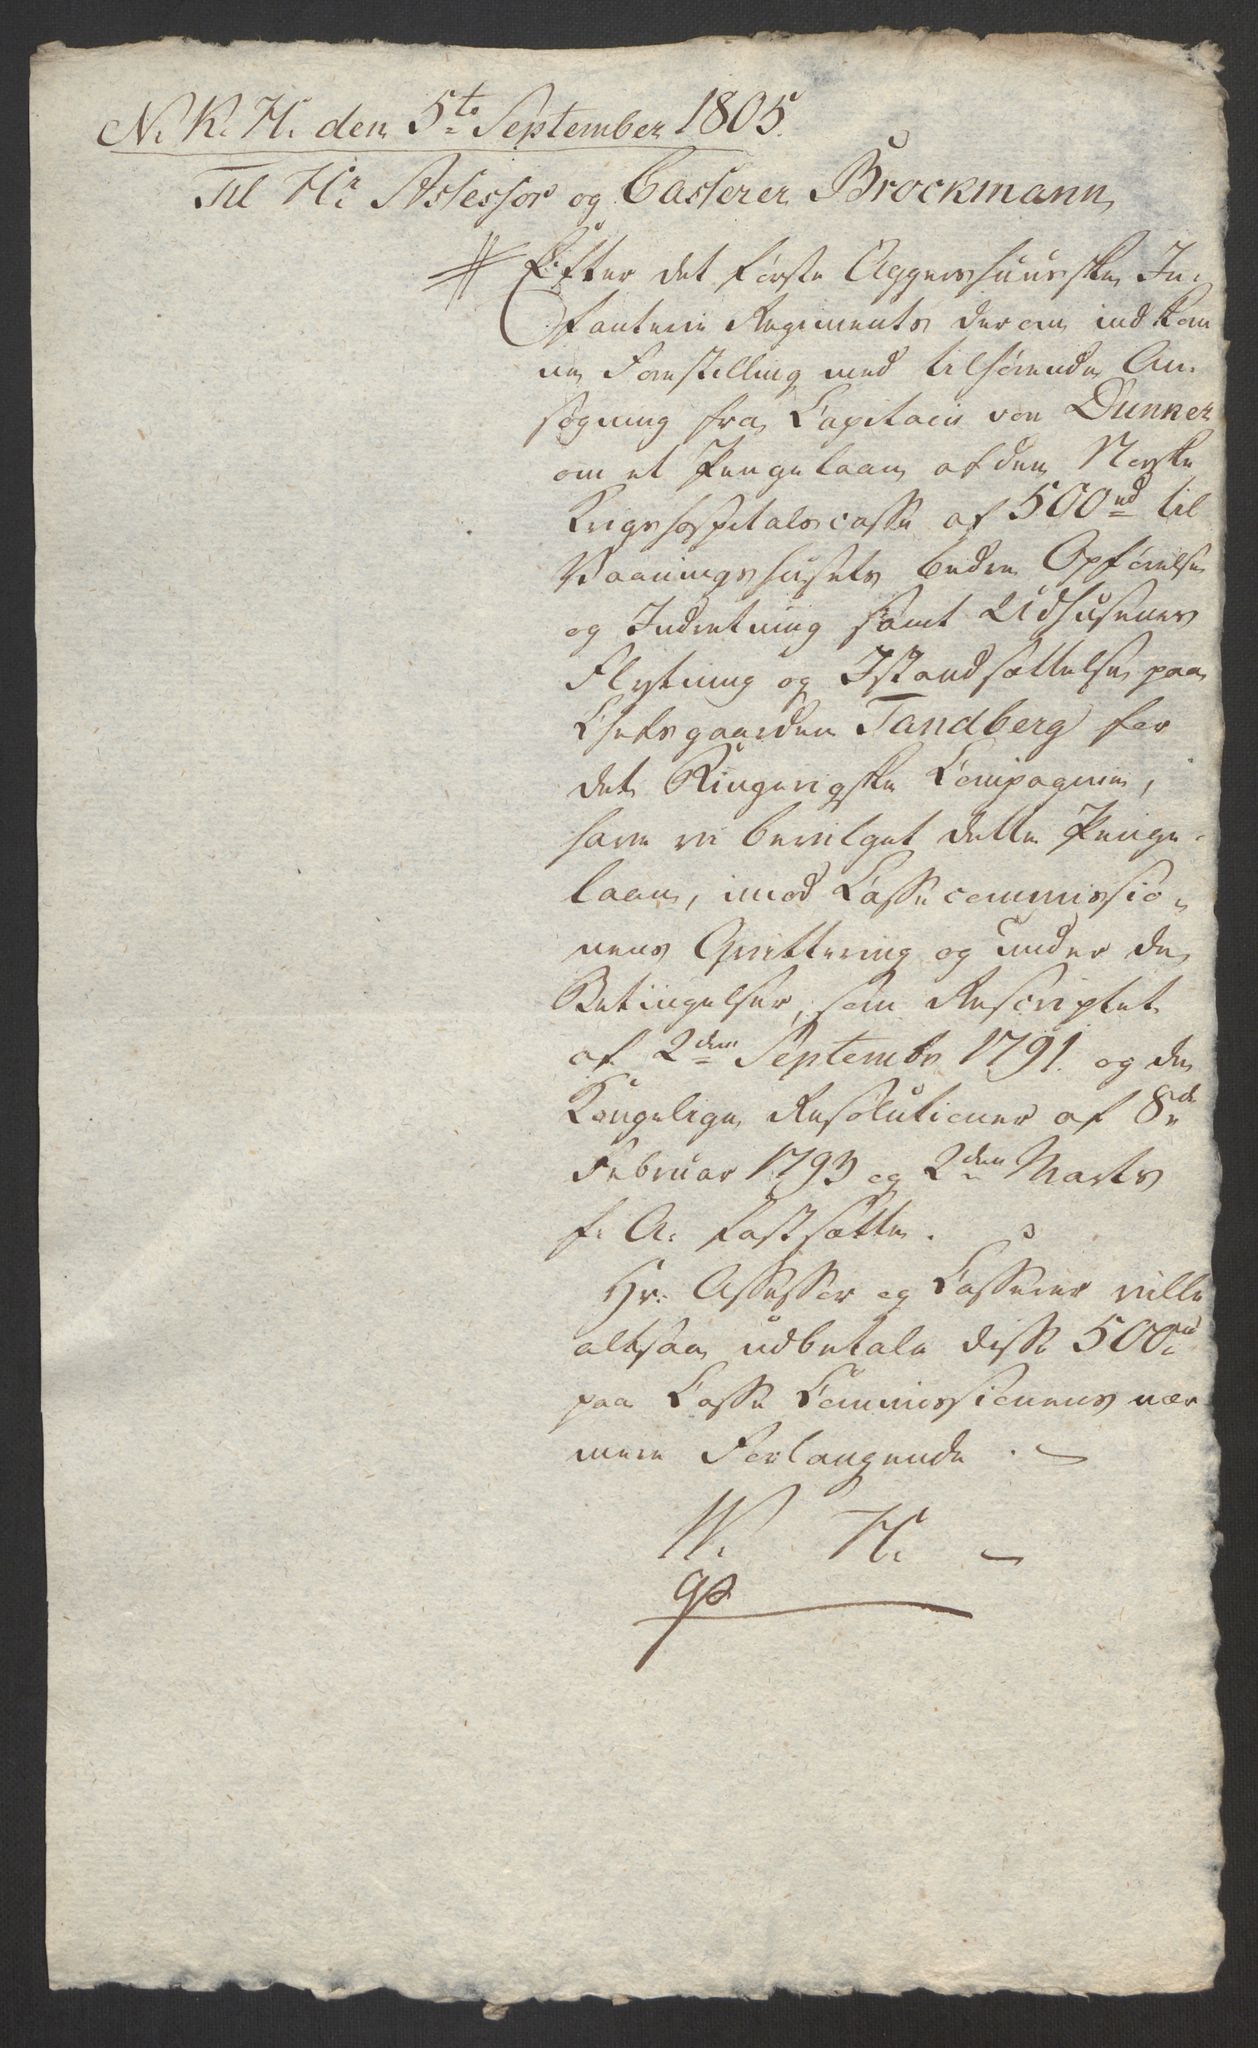 N. K. H. den 5te September 1805.
Til Hr Assessor og Casserer Brockmann
Efter det første Aggershuuske In-
fanterie Regiments derom indkom
ne Forestilling med tilhørende An-
søgning fra Capitain von Dunker
om et Pengelaan af den Norske
Krigshospitalscasse af 500 rd til
Vaaningshusets bedre Opførelse
og Indretning samt Udhusenes
Flytning og Istandsættelse paa
Chefsgaarden Tandberg for
det Ringerigske Compagnie,
have vi bevilget dette Penge-
laan, imod Cassecommissio-
nens Qvittering og under de
Betingelser, som Rescriptet
af 2den Septembr 1791. og de
Kongelige Resolutioner af 8de
Februar 1793 og 2den Marts
f. A. fastsætte.
Hr. Assessor og Casserer ville
altsaa udbetale disse 500 rd
paa Casse Commissionens nær
mere Forlangende.